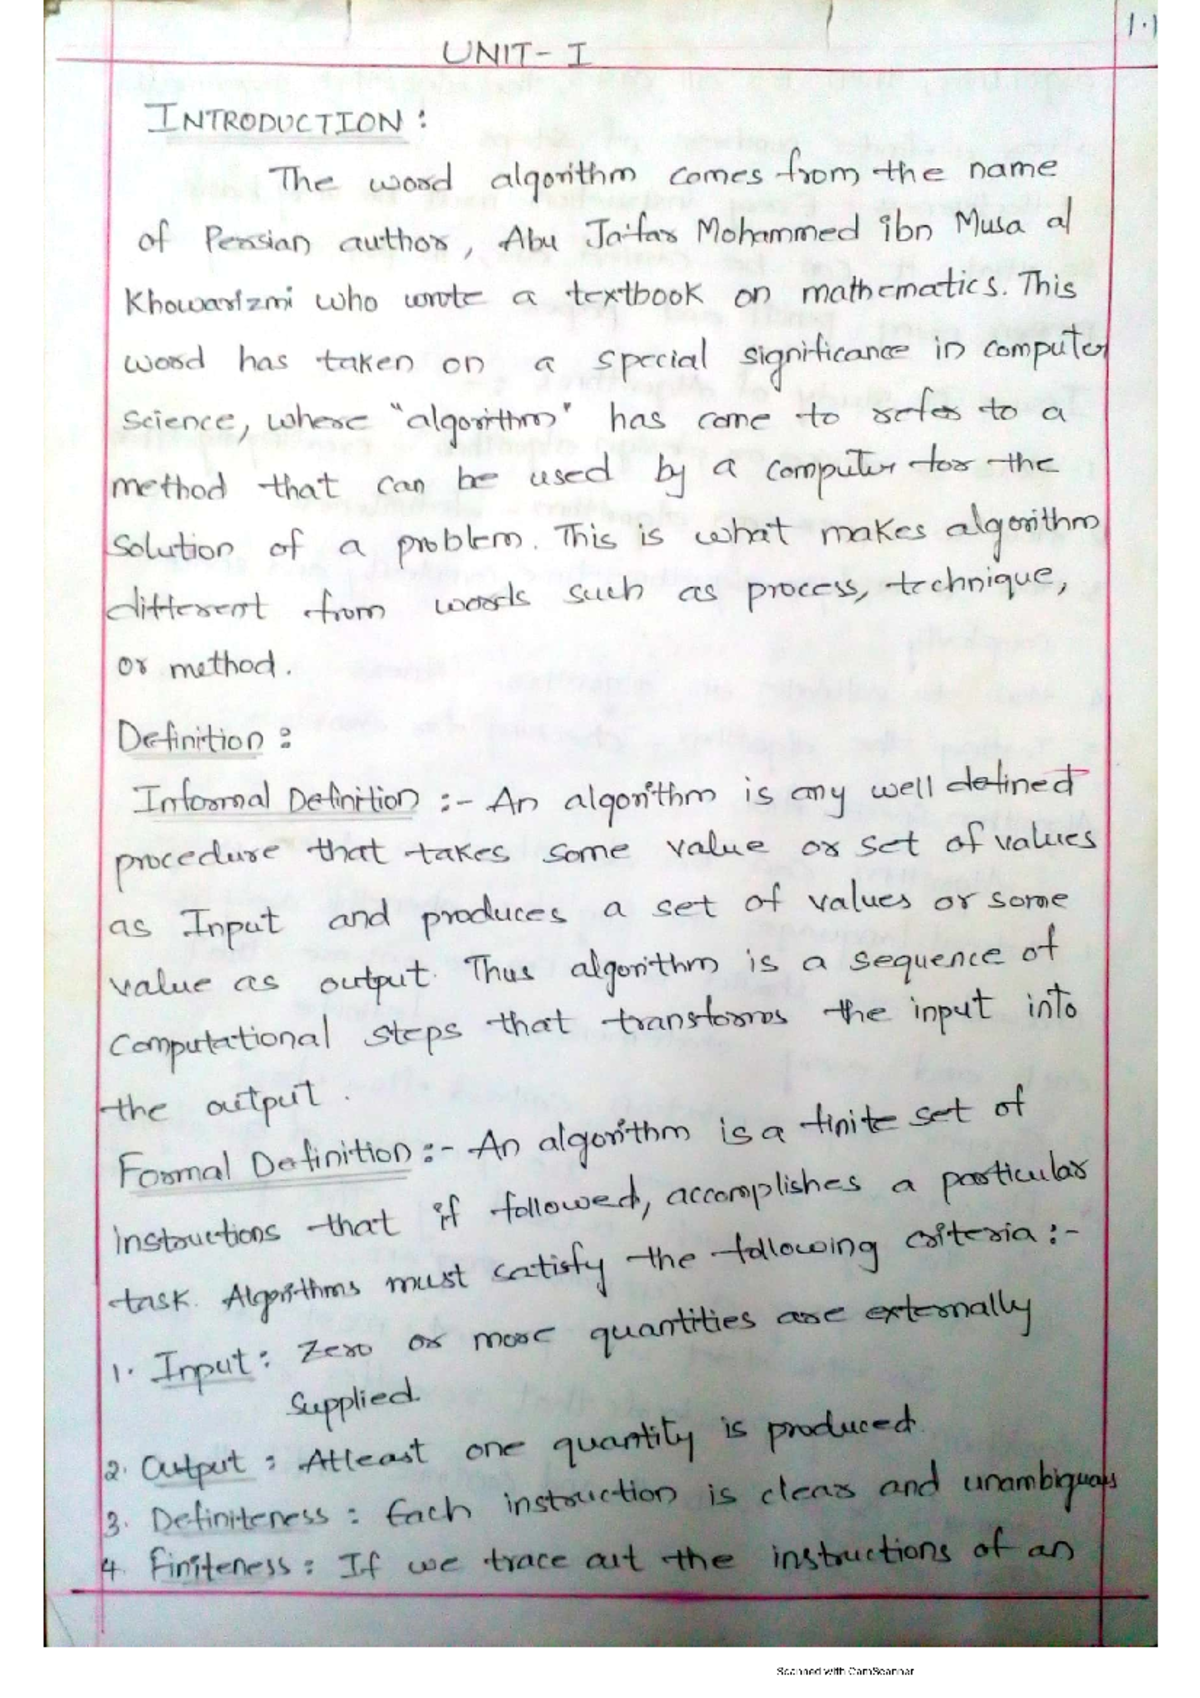 1.1
UNIT- I
INTRODUCTION :
The word algorithm comes from the name
of Persian author, Abu Ja'far Mohammed ibn Musa al
Khowarizmi who wrote a textbook on mathematics. This
word has taken on a special significance in computer
science, where "algorithm" has come to refer to a
method that can be used by a computer for the
solution of a problem. This is what makes algorithm
different from words such as process, technique,
or method.
Definition :
Informal Definition :- An algorithm is any well defined
procedure that takes some value or set of values
as Input and produces a set of values or some
value as output. Thus algorithm is a sequence of
computational steps that transforms the input into
the output.
Formal Definition :- An algorithm is a finite set of
instructions that if followed, accomplishes a particular
task. Algorithms must satisfy the following criteria :-
1. Input : Zero or more quantities are externally
Supplied.
2. Output : Atleast one quantity is produced.
3. Definiteness : Each instruction is clear and unambiguous
4. Finiteness : If we trace out the instructions of an
Scanned with CamScanner